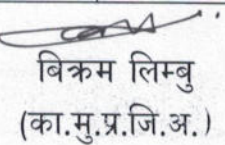 बिक्रम लिम्बु
(का.मु.प्र.जि.अ.)